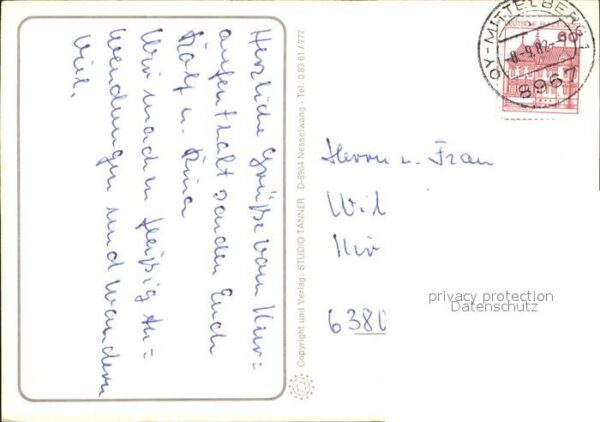 Herzliche Grüße vom Kur=
aufenthalt senden Euch
Rolf u. Rina
Wir machen fleißig An=
wendungen und wandern
viel.
Copyright und Verlag: STUDIO TANNER D-8964 Nesselwang · Tel. 0 83 61 / 777
OY-MITTELBERG 1
-8.-9.82-
8967
60
Herrn u. Frau
Wil
Kir
638
privacy protection
Datenschutz